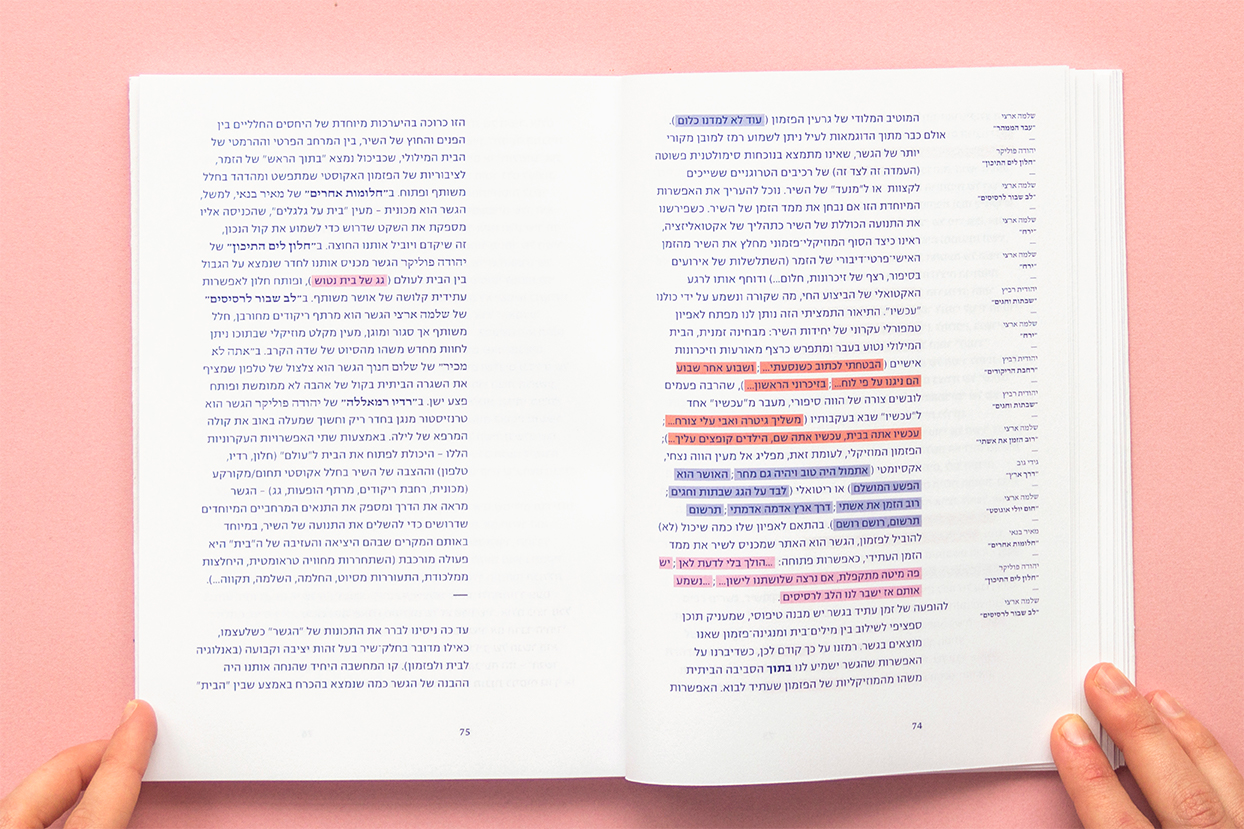 המוטיב המלודי של גרעין הפזמון (עוד לא למדנו כלום).
אולם כבר מתוך הדוגמאות לעיל ניתן לשמוע רמז למובן מקורי
יותר של הגשר, שאינו מתמצא בנוכחות סימולטנית פשוטה
(העמדה זה לצד זה) של רכיבים הטרוגניים ששייכים
לקצוות או ל״מנעד״ של השיר. נוכל להעריך את האפשרות
המיוחדת הזו אם נבחן את ממד הזמן של השיר. כשפירשנו
את התנועה הכוללת של השיר כתהליך של אקטואליזציה,
ראינו כיצד הסוף המוזיקלי־פזמוני מחלץ את השיר מהזמן
האישי־פרטי־דיבורי של הזמר (השתלשלות של אירועים
בסיפור, רצף של זיכרונות, חלום...) ודוחף אותו לרגע
האקטואלי של הביצוע החי, מה שקורה ונשמע על ידי כולנו
״עכשיו״. התיאור התמציתי הזה נותן לנו מפתח לאפיון
טמפורלי עקרוני של יחידות השיר: מבחינה זמנית, הבית
המילולי נטוע בעבר ומתפרש כרצף מאורעות וזיכרונות
אישיים (הבטחתי לכתוב כשנסעתי...; ושבוע אחר שבוע
הם ניגנו על פי לוח...; בזיכרוני הראשון...), שהרבה פעמים
לובשים צורה של הווה סיפורי, מעבר מ״עכשיו״ אחד
ל״עכשיו״ שבא בעקבותיו (משליך גיטרה ואבי עלי צורח...;
עכשיו אתה בבית, עכשיו אתה שם, הילדים קופצים עליך...);
הפזמון המוזיקלי, לעומת זאת, מפליג אל מעין הווה נצחי,
אקסיומטי (אתמול היה טוב ויהיה גם מחר; האושר הוא
הפשע המושלם) או ריטואלי (לבד על הגג שבתות וחגים;
רוב הזמן את אשתי; דרך ארץ אדמה אדמתי; תרשום
תרשום, רושם רושם). בהתאם לאפיון שלו כמה שיכול (לא)
להוביל לפזמון, הגשר הוא האתר שמכניס לשיר את ממד
הזמן העתידי, כאפשרות פתוחה: ...הולך בלי לדעת לאן; יש
פה מיטה מתקפלת, אם נרצה שלושתנו לישון...; ...נשמע
אותם אז ישבר לנו הלב לרסיסים.
להופעה של זמן עתיד בגשר יש מבנה טיפוסי, שמעניק תוכן
ספציפי לשילוב בין מילים־בית ומנגינה־פזמון שאנו
מוצאים בגשר. רמזנו על כך קודם לכן, כשדיברנו על
האפשרות שהגשר ישמיע לנו בתוך הסביבה הביתית
משהו מהמוזיקליות של הפזמון שעתיד לבוא. האפשרות
74
שלמה ארצי
״עבד הממהר״
—
יהודה פוליקר
״חלון לים התיכון״
—
שלמה ארצי
״לב שבור לרסיסים״
—
שלמה ארצי
״ירח״
—
שלמה ארצי
״ירח״
—
יהודית רביץ
״שבתות וחגים״
—
שלמה ארצי
״ירח״
—
יהודית רביץ
״רחבת הריקודים״
—
יהודית רביץ
״שבתות וחגים״
—
שלמה ארצי
״רוב הזמן את אשתי״
—
גידי גוב
״דרך ארץ״
—
שלמה ארצי
״חום יולי אוגוסט״
—
מאיר בנאי
״חלומות אחרים״
—
יהודה פוליקר
״חלון לים התיכון״
—
שלמה ארצי
״לב שבור לרסיסים״
הזו כרוכה בהיערכות מיוחדת של היחסים החלליים בין
הפנים והחוץ של השיר, בין המרחב הפרטי וההרמטי של
הבית המילולי, שכביכול נמצא ״בתוך הראש״ של הזמר,
לציבוריות של הפזמון האקוסטי שמתפשט ומהדהד בחלל
משותף ופתוח. ב״חלומות אחרים״ של מאיר בנאי, למשל,
הגשר הוא מכונית – מעין ״בית על גלגלים״, שהכניסה אליו
מספקת את השקט שדרוש כדי לשמוע את קול הנכון,
זה שיקדם ויוביל אותנו החוצה. ב״חלון לים התיכון״ של
יהודה פוליקר הגשר מכניס אותנו לחדר שנמצא על הגבול
בין הבית לעולם (גג של בית נטוש), ופותח חלון לאפשרות
עתידית קלושה של אושר משותף. ב״לב שבור לרסיסים״
של שלמה ארצי הגשר הוא מרתף ריקודים מחורבן, חלל
משותף אך סגור ומוגן, מעין מקלט מוזיקלי שבתוכו ניתן
לחוות מחדש משהו מהסיוט של שדה הקרב. ב״אתה לא
מכיר״ של שלום חנוך הגשר הוא צלצול של טלפון שמציף
את השגרה הביתית בקול של אהבה לא ממומשת ופותח
פצע ישן. ב״רדיו רמאללה״ של יהודה פוליקר הגשר הוא
טרנזיסטור מנגן בחדר ריק וחשוך שמעלה באוב את קולה
המרפא של לילה. באמצעות שתי האפשרויות העקרוניות
הללו – היכולת לפתוח את הבית ל״עולם״ (חלון, רדיו,
טלפון) וההצבה של השיר בחלל אקוסטי תחום/מקורקע
(מכונית, רחבת ריקודים, מרתף הופעות, גג) – הגשר
מראה את הדרך ומספק את התנאים המרחביים המיוחדים
שדרושים כדי להשלים את התנועה של השיר, במיוחד
באותם המקרים שבהם היציאה והעזיבה של ה״בית״ היא
פעולה מורכבת (השתחררות מחוויה טראומטית, היחלצות
ממלכודת, התעוררות מסיוט, החלמה, השלמה, תקווה...).
—
עד כה ניסינו לברר את התכונות של ״הגשר״ כשלעצמו,
כאילו מדובר בחלק־שיר בעל זהות יציבה וקבועה (באנלוגיה
לבית ולפזמון). קו המחשבה היחיד שהנחה אותנו היה
ההבנה של הגשר כמה שנמצא בהכרח באמצע שבין ״הבית״
75